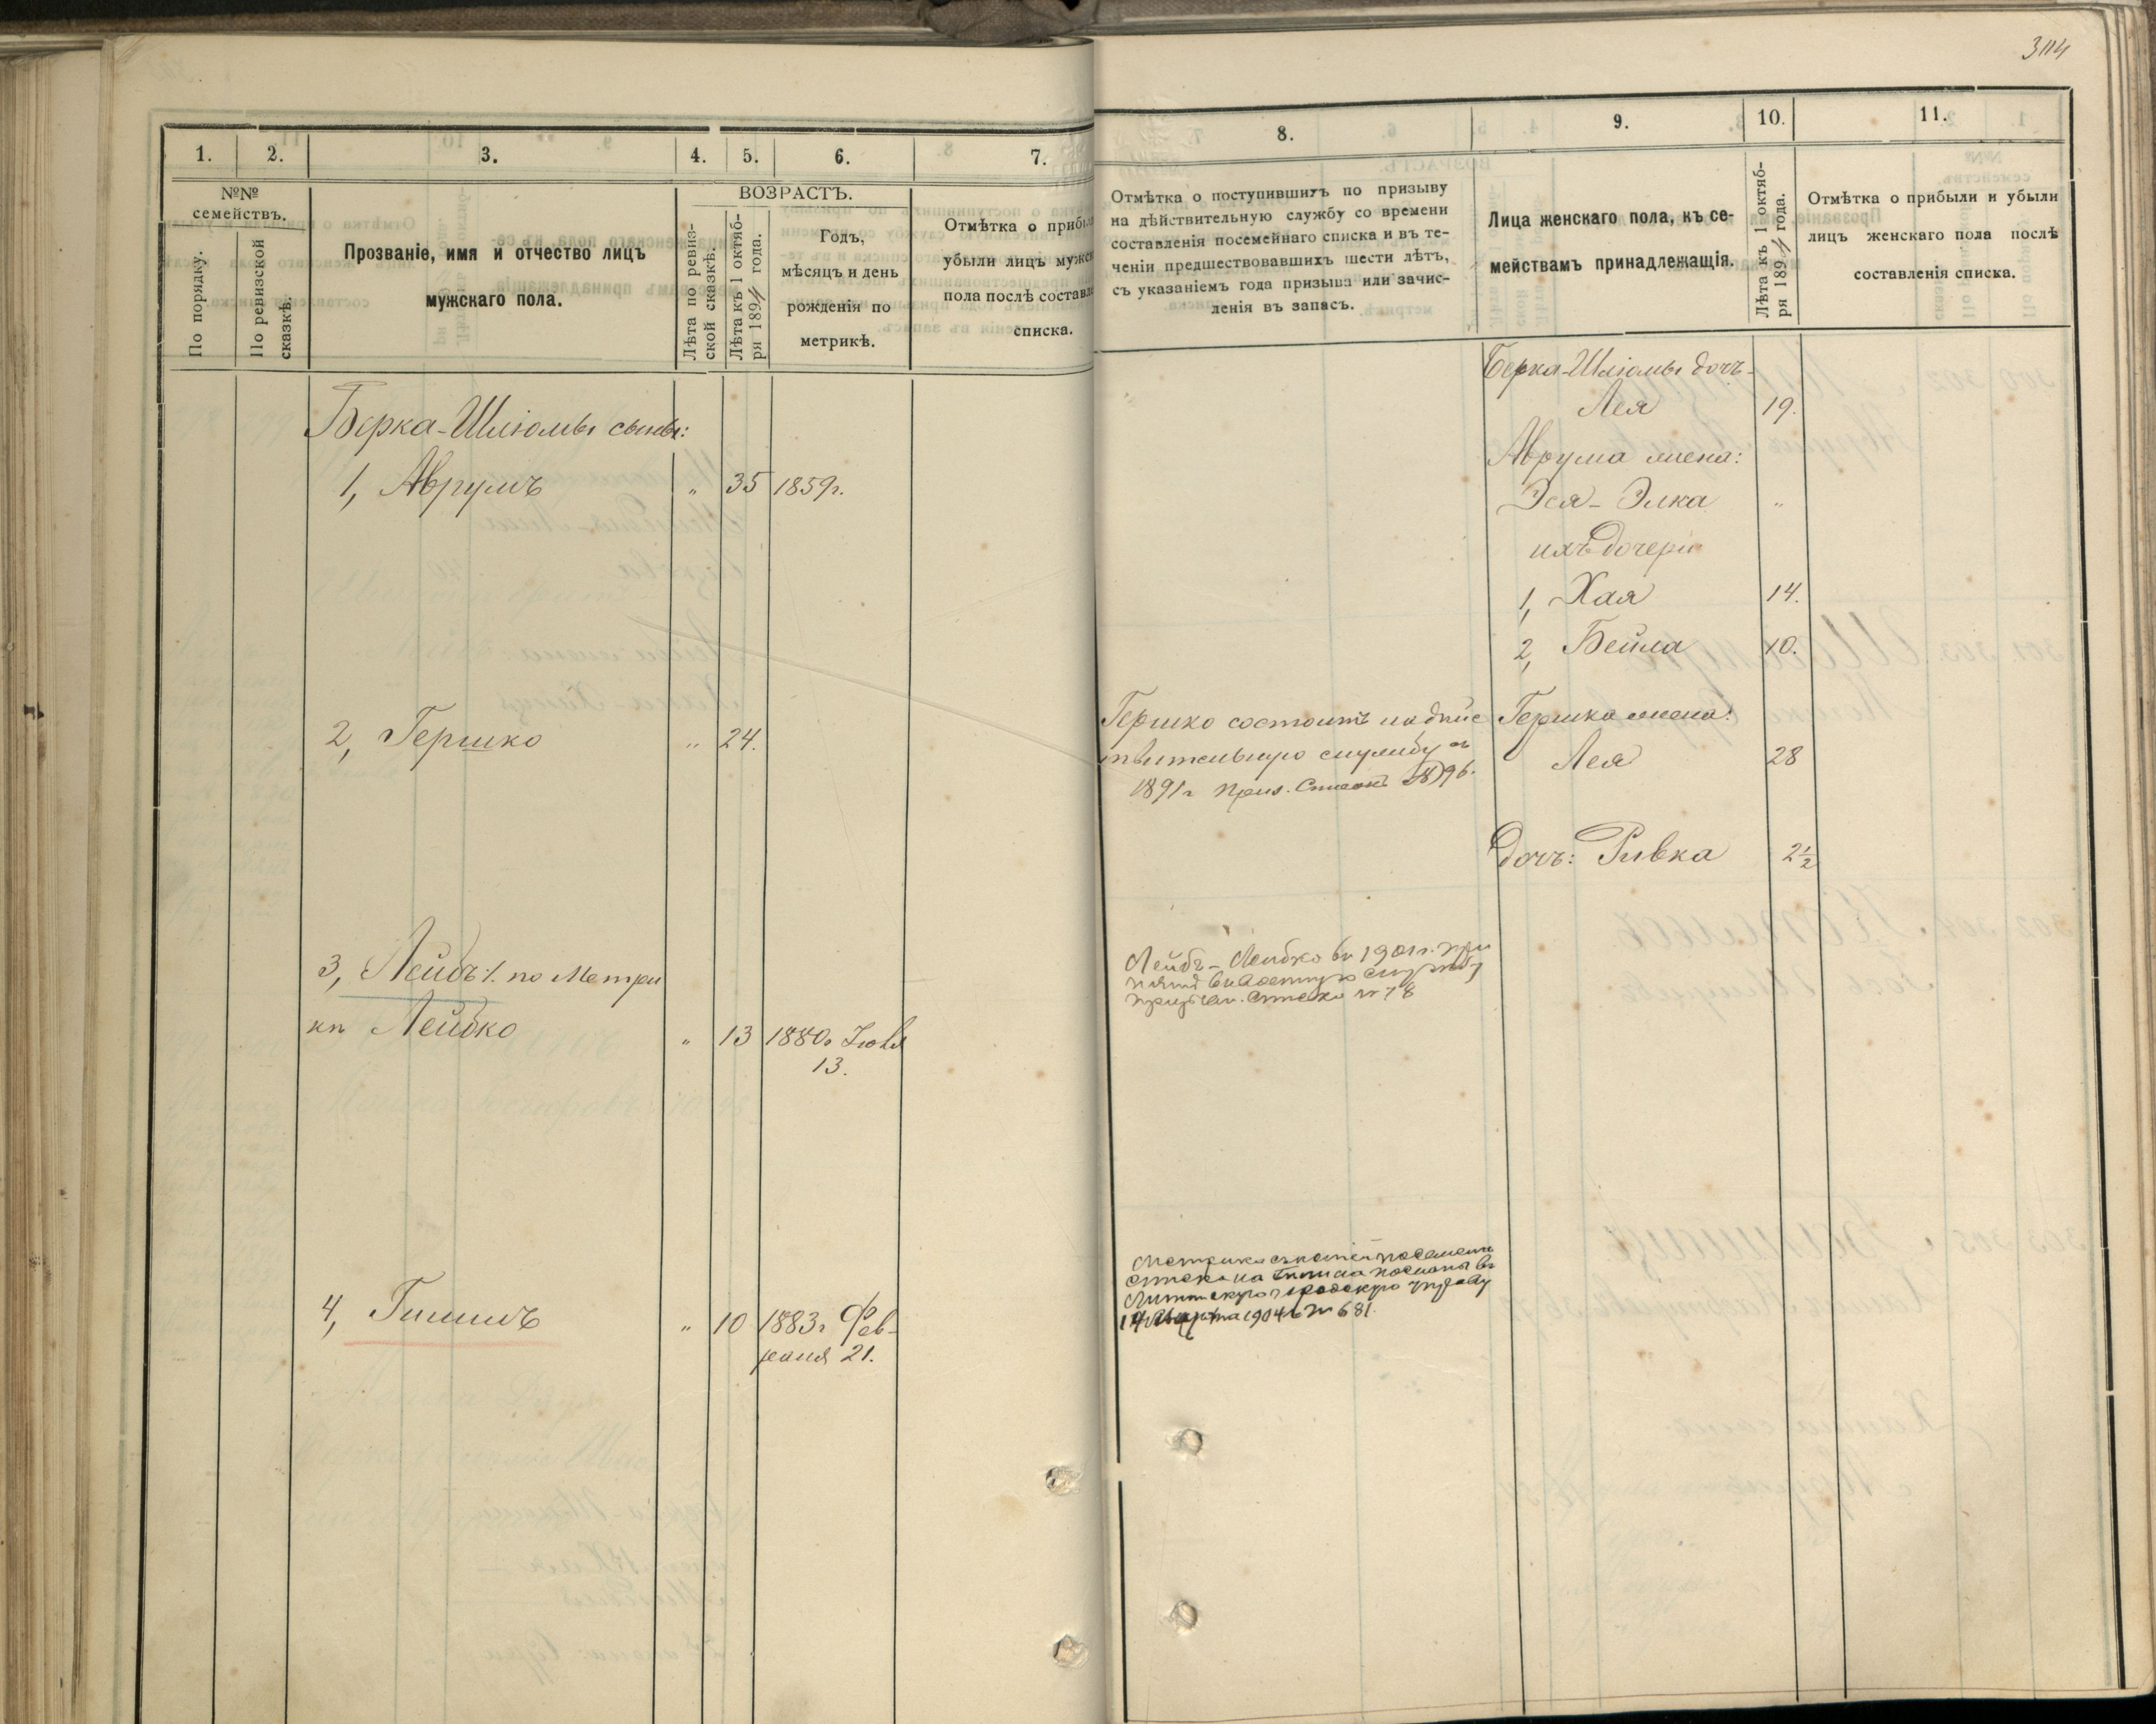 304
1.
2.
3.
4.
5.
6.
7.
№№
семействъ.
По порядку.
По ревизской
сказкѣ.
Прозваніе, имя и отчество лицъ
мужскаго пола.
ВОЗРАСТЪ.
Лѣта по ревиз-
ской сказкѣ.
Лѣта къ 1 октяб-
ря 1894 года.
Годъ,
мѣсяцъ и день
рожденія по
метрикѣ.
Отмѣтка о прибы
убыли лицъ мужск
пола послѣ составл
списка.
Берка-Шліомы сыны:
1, Аврумъ " 35 1859г.
2, Гершко " 24.
3, Лейбъ: по Метри
кѣ Лейбко " 13 1880г Іюля
13.
4, " 10 1883г Фев-
раля 21.
8.
9.
10.
11.
Отмѣтка о поступившихъ по призыву
на дѣйствительную службу со времени
составленія посемейнаго списка и въ те-
ченіи предшествовавшихъ шести лѣтъ,
съ указаніемъ года призыва или зачис-
ленія въ запасъ.
Лица женскаго пола, къ се-
мействамъ принадлежащія.
Лѣта къ 1 октяб-
ря 1894 года.
Отмѣтка о прибыли и убыли
лицъ женскаго пола послѣ
составленія списка.
Берка-Шліомы дочь-
Лея 19.
Аврума жена:
Эся-Элка "
ихъ дочери
1, Хая 14.
2, Бейла 10.
Гершко состоитъ на дѣйс
твительную службу съ
1891г приз. Списокъ 96.
Гершка жена:
Лея 28
Дочь: Ривка 2½
Лейбъ-Лейбко въ 1901г. при
нятъ въ военную службу
призывн. списка № 78
Метрика
списка на посланы въ
городскую управу
14 Марта 1904 № 681.